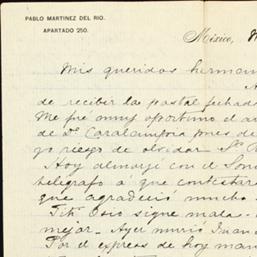 PABLO MARTINEZ DEL RIO.
APARTADO 250.
México,
Mis queridos herman
de recibir la postal fechada
Me fue muy oportuno el a
de Dª Caralampia pues de
yo riesgo de olvidar
Hoy almorcé con el
telégrafo á que contestar
que agradeció mucho
Titi Osio sigue mala
mejor. Ayer murió Juan
Por el expreso de hoy man